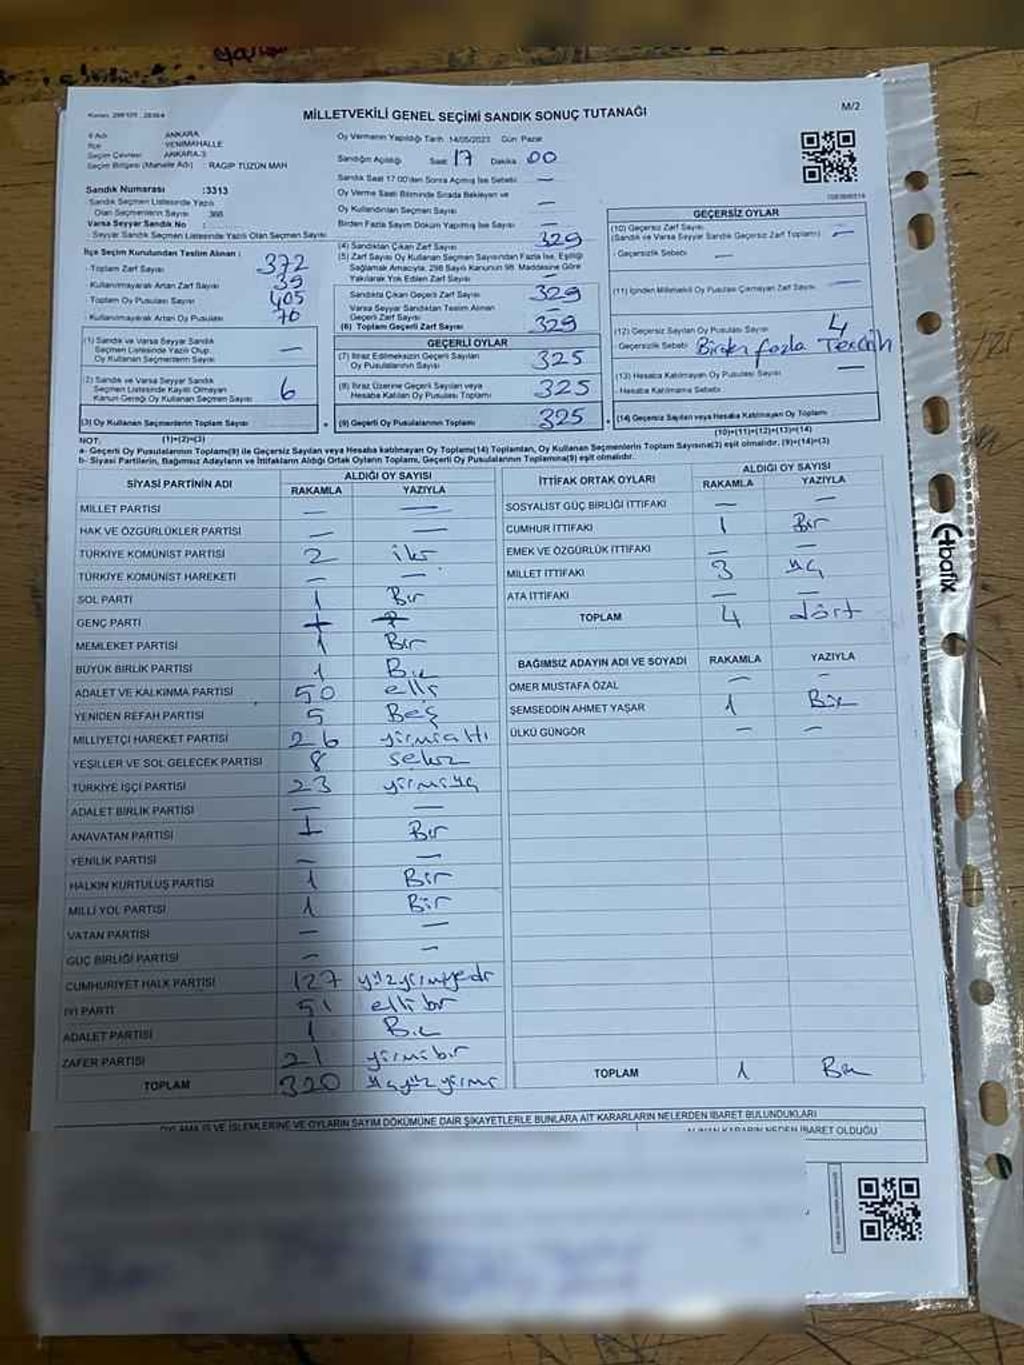 MİLLETVEKİLİ GENEL SEÇİMİ SANDIK SONUÇ TUTANAĞI
M/2
İl Adı : ANKARA
İlçe : YENİMAHALLE
Seçim Çevresi : ANKARA-3
Seçim Bölgesi (Mahalle Adı) : RAGIP TÜZÜN MAH
Sandık Numarası :3313
Sandık Seçmen Listesinde Yazılı
Olan Seçmenlerin Sayısı : 366
Varsa Seyyar Sandık No :
- Seyyar Sandık Seçmen Listesinde Yazılı Olan Seçmen Sayısı
İlçe Seçim Kurulundan Teslim Alınan :
- Toplam Zarf Sayısı 372
- Kullanılmayarak Artan Zarf Sayısı 39
- Toplam Oy Pusulası Sayısı 405
- Kullanılmayarak Artan Oy Pusulası 76
(1) Sandık ve Varsa Seyyar Sandık
Seçmen Listesinde Yazılı Olup
Oy Kullanan Seçmenlerin Sayısı —
(2) Sandık ve Varsa Seyyar Sandık
Seçmen Listesinde Kayıtlı Olmayan
Kanun Gereği Oy Kullanan Seçmen Sayısı 6
(3) Oy Kullanan Seçmenlerin Toplam Sayısı
(1)+(2)=(3)
Oy Vermenin Yapıldığı Tarih 14/05/2023 Gün Pazar
Sandığın Açıldığı Saat 17 Dakika 00
Sandık Saat 17.00'den Sonra Açılmış İse Sebebi —
Oy Verme Saati Bitiminde Sırada Bekleyen ve
Oy Kullandırılan Seçmen Sayısı —
Birden Fazla Sayım Döküm Yapılmış İse Sayısı —
(4) Sandıktan Çıkan Zarf Sayısı 329
(5) Zarf Sayısı Oy Kullanan Seçmen Sayısından Fazla İse, Eşitliği
Sağlamak Amacıyla, 298 Sayılı Kanunun 98. Maddesine Göre
Yakılarak Yok Edilen Zarf Sayısı —
Sandıkta Çıkan Geçerli Zarf Sayısı 329
Varsa Seyyar Sandıktan Teslim Alınan
Geçerli Zarf Sayısı
(6) Toplam Geçerli Zarf Sayısı 329
GEÇERLİ OYLAR
(7) İtiraz Edilmeksizin Geçerli Sayılan
Oy Pusulası Sayısı 325
(8) İtiraz Üzerine Geçerli Sayılan veya
Hesaba Katılan Oy Pusulası Toplamı 325
(9) Geçerli Oy Pusulalarının Toplamı 325
GEÇERSİZ OYLAR
(10) Geçersiz Zarf Sayısı
(Sandık ve Varsa Seyyar Sandık Geçersiz Zarf Toplamı) —
- Geçersizlik Sebebi —
(11) İçinden Milletvekili Oy Pusulası Çıkmayan Zarf Sayısı —
(12) Geçersiz Sayılan Oy Pusulası Sayısı 4
- Geçersizlik Sebebi Birden fazla Tercih
(13) Hesaba Katılmayan Oy Pusulası Sayısı —
- Hesaba Katılmama Sebebi
(14) Geçersiz Sayılan veya Hesaba Katılmayan Oy Toplamı
(10)+(11)+(12)+(13)=(14)
NOT:
a- Geçerli Oy Pusulalarının Toplamı(9) ile Geçersiz Sayılan veya Hesaba katılmayan Oy Toplamı(14) Toplamları, Oy Kullanan Seçmenlerin Toplam Sayısına(3) eşit olmalıdır. (9)+(14)=(3)
b- Siyasi Partilerin, Bağımsız Adayların ve İttifakların Aldığı Ortak Oyların Toplamı, Geçerli Oy Pusulalarının Toplamına(9) eşit olmalıdır.
SİYASİ PARTİNİN ADI ALDIĞI OY SAYISI
RAKAMLA YAZIYLA
MİLLET PARTİSİ — —
HAK VE ÖZGÜRLÜKLER PARTİSİ — —
TÜRKİYE KOMÜNİST PARTİSİ 2 iki
TÜRKİYE KOMÜNİST HAREKETİ — —
SOL PARTİ 1 Bir
GENÇ PARTİ
MEMLEKET PARTİSİ 1 Bir
BÜYÜK BİRLİK PARTİSİ 1 Bir
ADALET VE KALKINMA PARTİSİ 50 elli
YENİDEN REFAH PARTİSİ 5 Beş
MİLLİYETÇİ HAREKET PARTİSİ 26 yirmialtı
YEŞİLLER VE SOL GELECEK PARTİSİ 8 sekiz
TÜRKİYE İŞÇİ PARTİSİ 23 yirmiüç
ADALET BİRLİK PARTİSİ — —
ANAVATAN PARTİSİ 1 Bir
YENİLİK PARTİSİ — —
HALKIN KURTULUŞ PARTİSİ 1 Bir
MİLLİ YOL PARTİSİ 1 Bir
VATAN PARTİSİ — —
GÜÇ BİRLİĞİ PARTİSİ — —
CUMHURİYET HALK PARTİSİ 127 yüzyirmiyedi
İYİ PARTİ 51 ellibir
ADALET PARTİSİ 1 Bir
ZAFER PARTİSİ 21 yirmibir
TOPLAM 320 üçyüzyirmi
İTTİFAK ORTAK OYLARI ALDIĞI OY SAYISI
RAKAMLA YAZIYLA
SOSYALİST GÜÇ BİRLİĞİ İTTİFAKI —
CUMHUR İTTİFAKI 1 Bir
EMEK VE ÖZGÜRLÜK İTTİFAKI — —
MİLLET İTTİFAKI 3 üç
ATA İTTİFAKI — —
TOPLAM 4 dört
BAĞIMSIZ ADAYIN ADI VE SOYADI RAKAMLA YAZIYLA
ÖMER MUSTAFA ÖZAL — —
ŞEMSEDDİN AHMET YAŞAR 1 Bir
ÜLKÜ GÜNGÖR — —
TOPLAM 1 Bir
OYLAMA İŞ VE İŞLEMLERİNE VE OYLARIN SAYIM DÖKÜMÜNE DAİR ŞİKAYETLERLE BUNLARA AİT KARARLARIN NELERDEN İBARET BULUNDUKLARI
ALINAN KARARIN NEDEN İBARET OLDUĞU
bafix